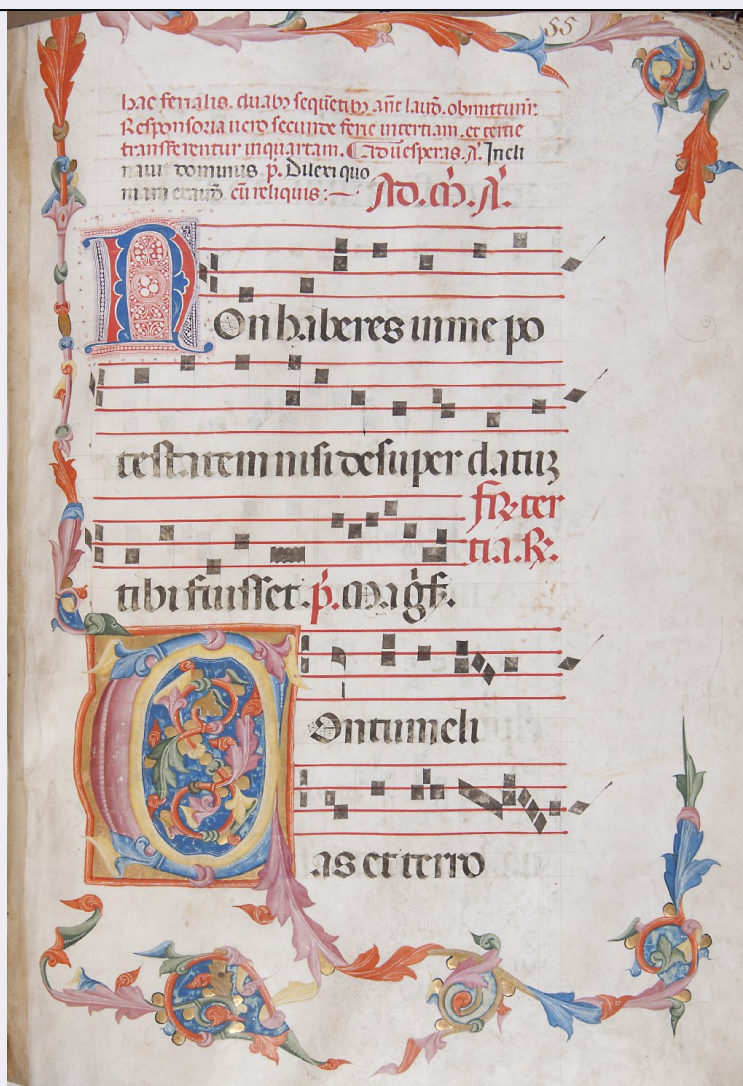 55
55
hac ferialis. duabꝫ sequētibꝫ añt laud. obmittunť.
Responsoria uero secunde ferie in tertiam. et tertie
transferentur in quartam. Ad uesperas. A. Incli
nauit dominus p. Dilexi quo
niam exaud. cū reliquis:— Ad. M. A.
Non haberes in me po
testatem nisi desuper datuꝫ
fr. ter
tia. R.
tibi fuisset. p. Magf.
Contumeli
as et terro